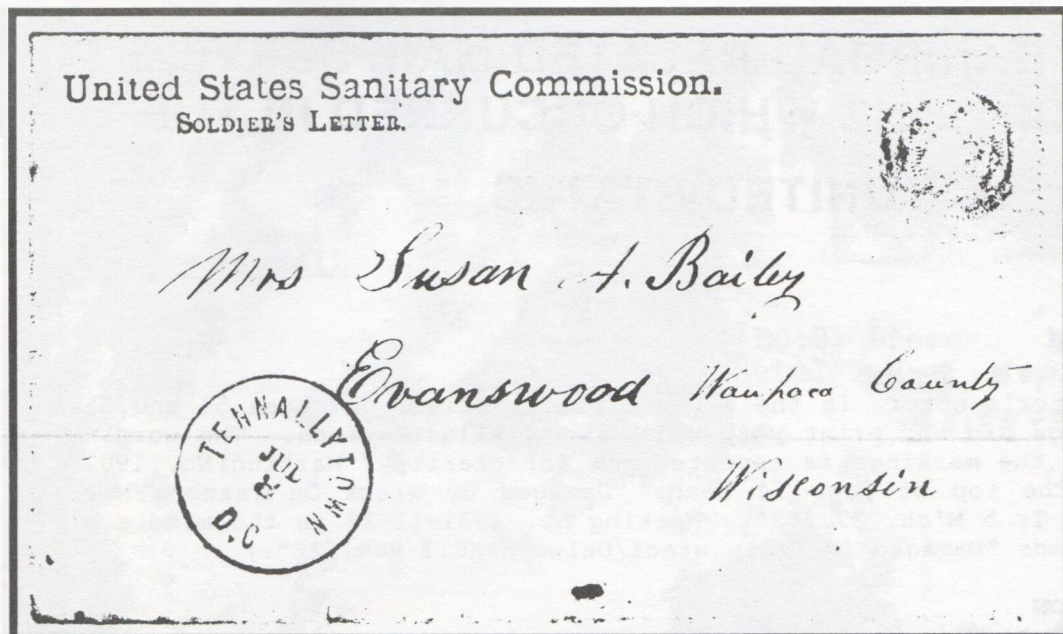 United States Sanitary Commission.
SOLDIER'S LETTER.
Mrs Susan A. Bailey
Evanswood Waupaca County
Wisconsin
TENNALLYTOWN
JUL
D.C.